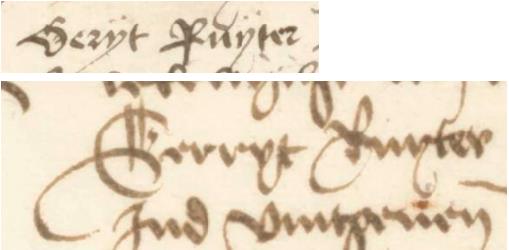 Geryt Ruyter
Gerryt Ruyter
Ind